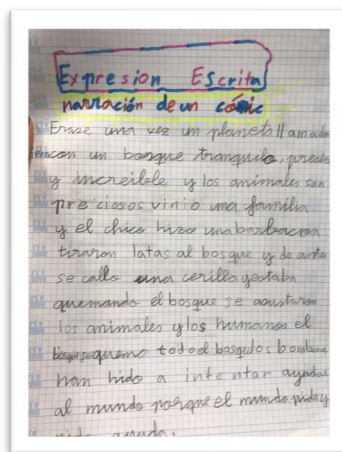 Expresion Escrita
narración de un cómic
Erase una vez un planeta llamado
con un bosque tranquilo,
y increible y los animales son
preciosos vinio una familia
y el chico hizo una barbacoa
tiraron latas al bosque y de
se callo una cerilla y estaba
quemando el bosque se asustaron
los animales y los humanos el
bosque se quemo todo el bosque los
han hido a intentar ayudar
al mundo porque el mundo
ayuda.